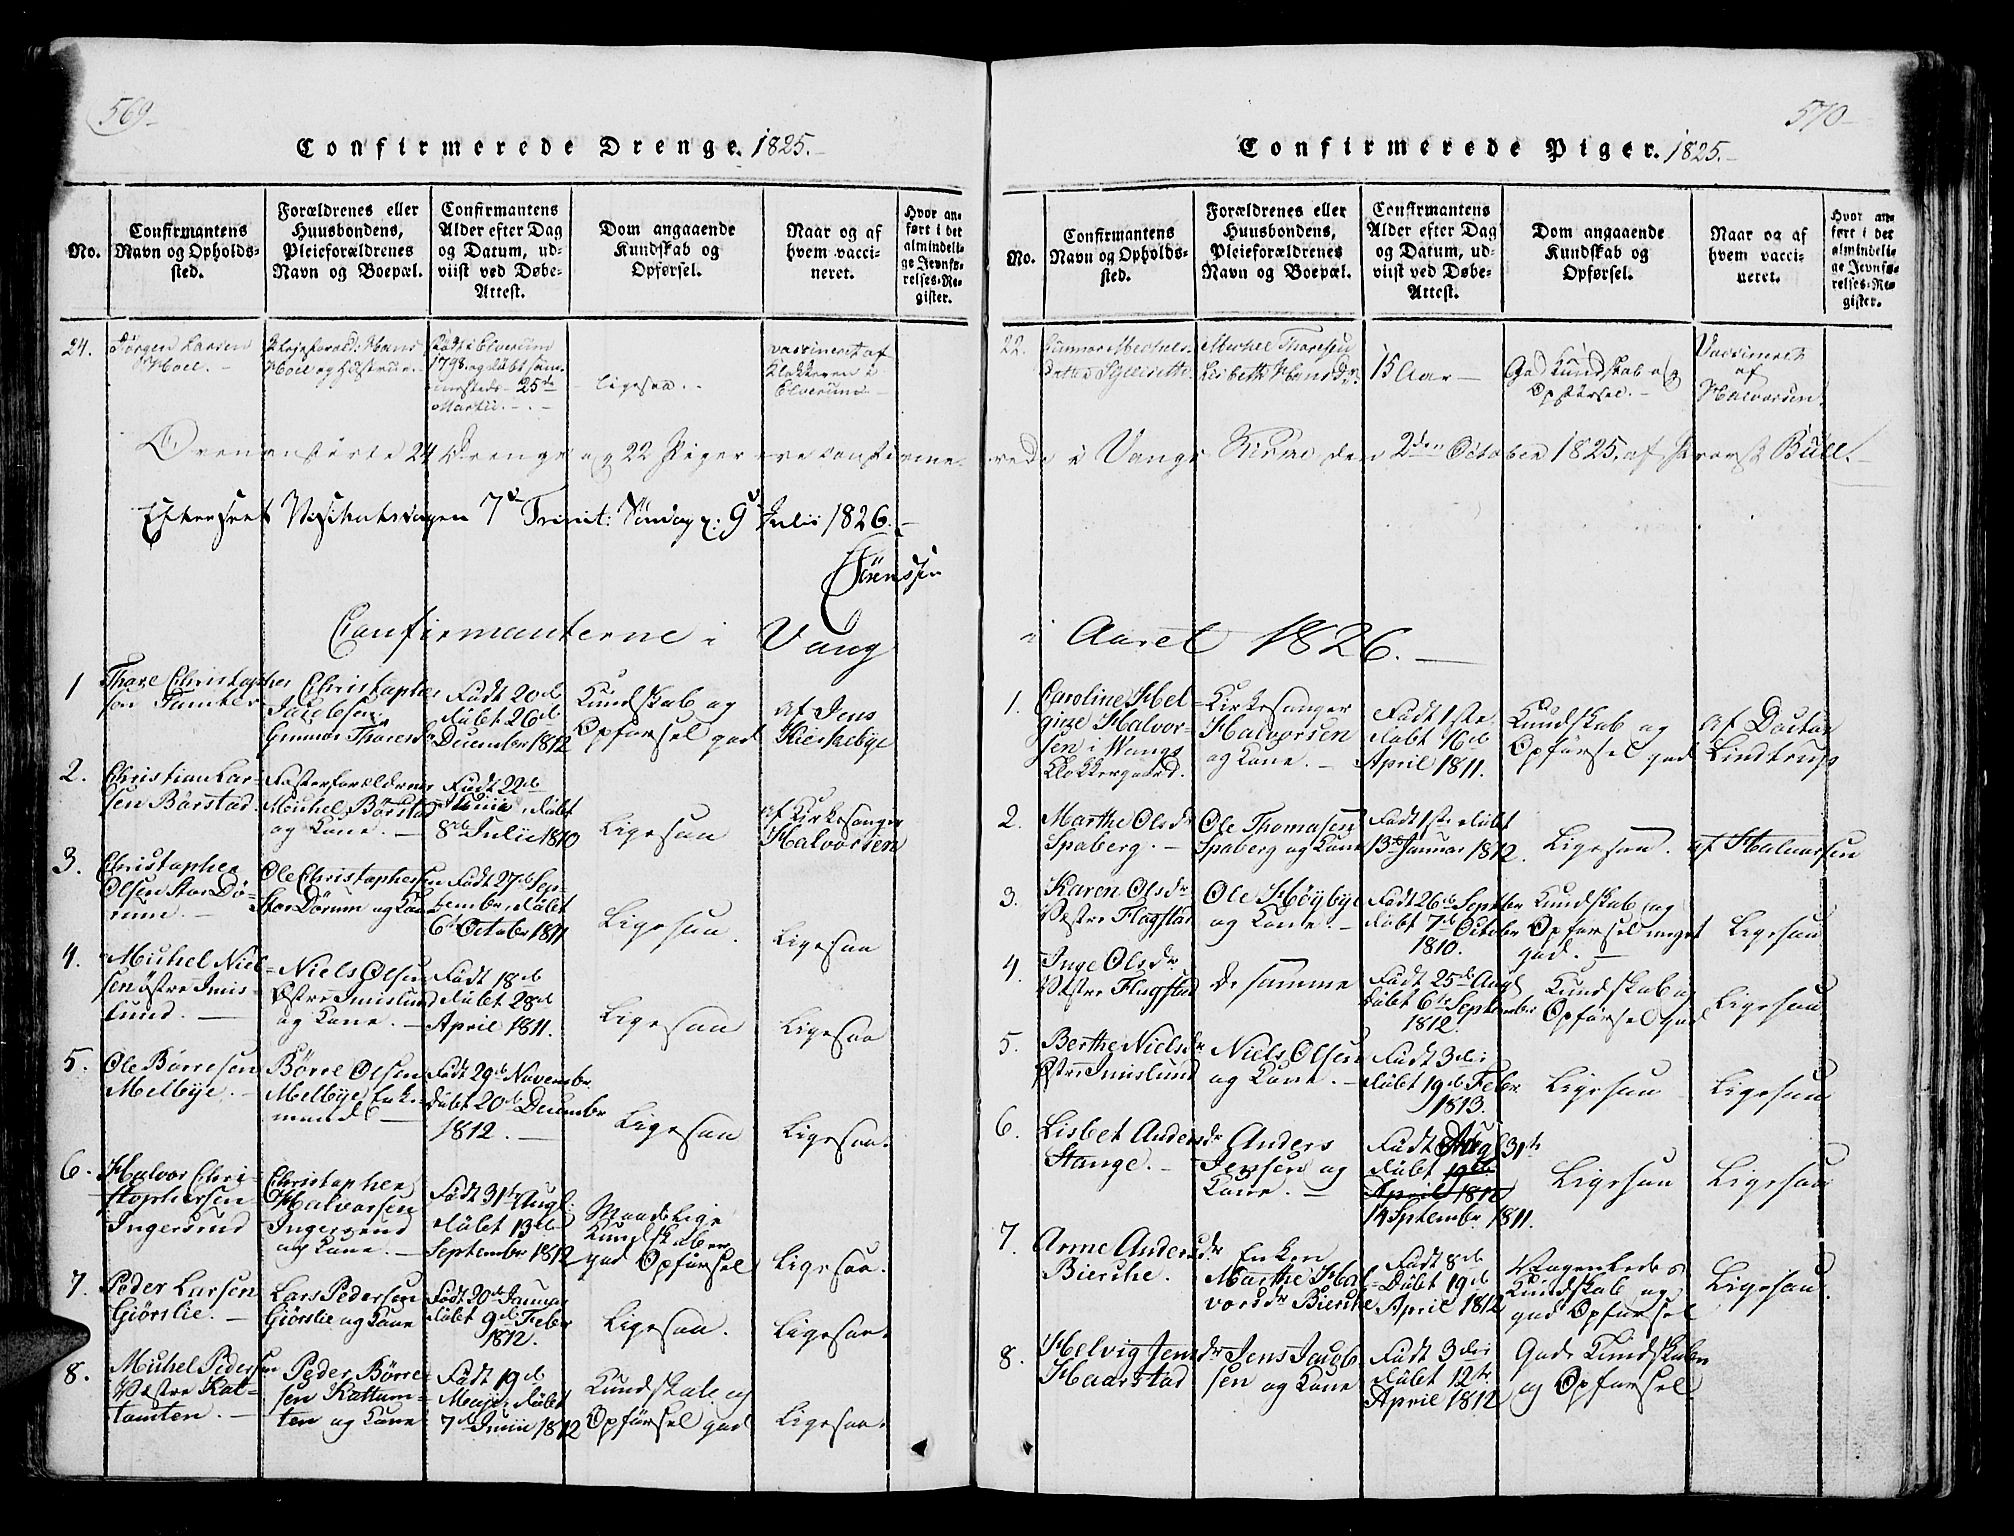 569
Confirmerede Drenge. 1825.
No.
Confirmantens
Navn og Opholds-
sted.
Forældrenes eller
Huusbondens,
Pleieforældrenes
Navn og Boepæl.
Confirmantens
Alder efter Dag
og Datum, ud-
viist ved Døbe-
Attest.
Dom angaaende
Kundskab og
Opførsel.
Naar og af
hvem vacci-
neret.
Hvor an-
ført i det
almindeli-
ge Jevnfø-
relses-Re-
gister.
24.
Jörgen Larsen
Moe. -
Født i Elverum
1798 og døbt sam-
mesteds 25de
Martii. -
Ligesaa. -
Vaccineret af
Klokkeren i
Elverum. -
Ovenanførte 24 Drenge og 22 Piger ere confirme-
Efterseet Visitatsdagen 7de Trinit: Søndag 9d Julii 1826. -
Sörenssen
Confirmanterne i Vang
1
Thore Christopher
sen Tamter
Christopher
Jacobsen
Gunnor Thoresd.
Født 20de
døbt 26de
December 1812
Kundskab og
Opførsel god
af Jens
Kierkebye
2.
Christian Lar-
sen Børstad.
Fosterforældrene
Michel Børstad
og Kone. -
Født 29de
Junii, døbt
8de Julii 1810
Ligesaa
af Kirkesanger
Halvorsen
3.
Christopher
Olsen Stor Dø-
rum. -
Ole Christophersen
Stor Dørum og Kone
Født 27de Sep-
tembr, døbt
6te Octobr 1811
Ligesaa.
Ligesaa
4.
Michel Niel-
sen østre Imis-
lund. -
Niels Olsen
Østre Imislund
og Kone. -
Født 18de
døbt 28de
April 1811.
Ligesaa
Ligesaa
5.
Ole Børresen
Melbye. -
Børre Olsen
Melbye, Enke-
mand -
Født 29de Novembr.
døbt 20de Decembr
1812. -
Ligesaa
Ligesaa.
6.
Halvor Chri-
stophersen
Ingersrud
Christopher
Halvorsen
Ingersrud
og Kone. -
Født 31te Augl.
døbt 13de
Septembr 1812
Maadelige
Kundskaber
god Opførsel
Ligesaa.
7.
Peder Larsen
Giørslie. -
Lars Pedersen
Giørslie og Kone
Født 20de Januar
døbt 9de Febr
1812.
Ligesaa.
Ligesaa.
8.
Michel Pedersen
Vestre Kat-
tamten. -
Peder Børre-
sen Kattam-
ten og Kone
Født 19de
Maji, døbt
7de Junii 1812
Kundskab og
Opførsel god
Ligesaa.
570
Confirmerede Piger. 1825.
No.
Confirmantens
Navn og Opholds-
sted.
Forældrenes eller
Huusbondens,
Pleieforældrenes
Navn og Boepæl.
Confirmantens
Alder efter Dag
og Datum, ud-
viist ved Døbe-
Attest.
Dom angaaende
Kundskab og
Opførsel.
Naar og af
hvem vacci-
neret.
Hvor an-
ført i det
almindeli-
ge Jevnfø-
relses-Re-
gister.
22.
Michel Thoresen
Lisbeth Hansdr.
15 Aar -
God Kundskab og
Opførsel. -
Vaccineret
af
Halvorsen.
rede i Vangs Kirke den 2den October 1825. af Provst Bull. -
i Aaret 1826. -
1.
Caroline Hel-
gine Halvor-
sen i Vangs
Klokkergaard.
Kirkesanger
Halvorsen
og Kone. -
Født 1ste
døbt 16de
April 1811.
Kundskab og
Opførsel god
af Doctor
Lindtrup
2.
Marthe Olsdr
Spaberg. -
Ole Thomasen
Spaberg og Kone
Født 1ste døbt
13de Januar 1812.
Ligesaa.
af Halvorsen
3.
Karen Olsdr
Vestre Flagstad
Ole Høybye
og Kone. -
Født 26de Septbr
døbt 7de Octobr
1810.
Kundskab og
Opførsel meget
god. -
Ligesaa
4.
Inge Olsdr.
Vestre Flagstad
De samme
Født 25de Augl
døbt 6te Septembr
1812.
Kundskab og
Opførsel god
Ligesaa
5.
Berthe Nielsdr
Østre Imislund
Niels Olsen
og Kone. -
Født 3die
døbt 19de Febr
1813.
Ligesaa
Ligesaa
6.
Lisbet Andersdr
Stange. -
Anders
Jensen og
Kone. -
Født Augl 31te
døbt 19de
April 1812
14 Septembr 1811.
Ligesaa
Ligesaa
7.
Anne Andersdr
Bierche.
Enken
Marthe Hal-
vorsdr Bierche
Født 8de
Døbt 19de
April 1812
Kundskab og
god Opførsel
Ligesaa.
8.
Helvig Jensdr
Haarstad
Jens Jacob-
sen og Kone
Født 3die
døbt 12te
April 1812
Gode Kundskaber
og Opførsel